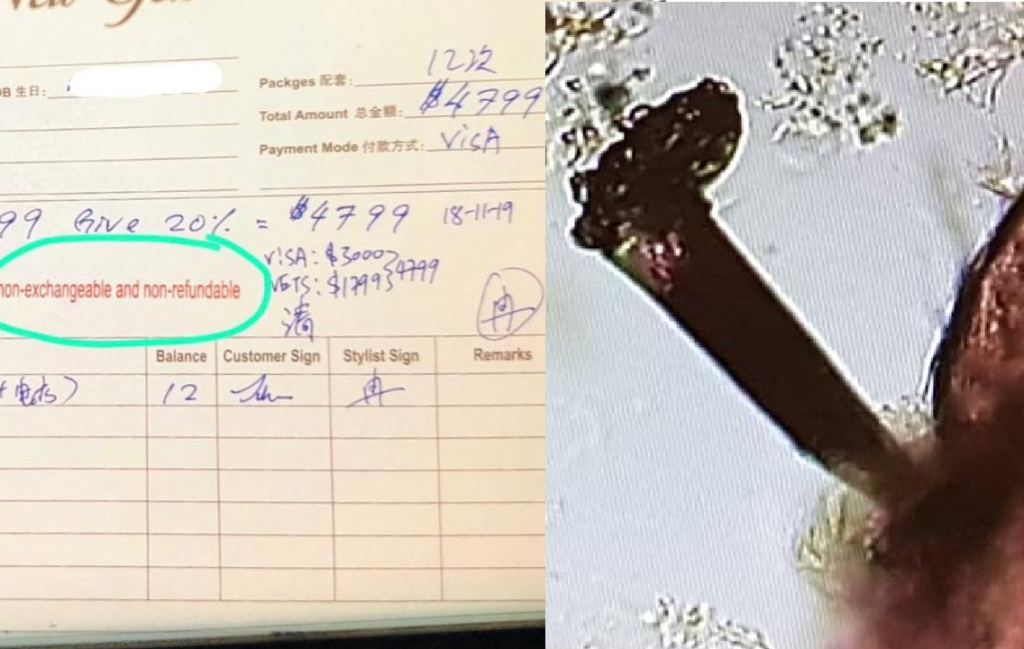 New
OB 生日:
Packges 配套: 12次
Total Amount 总金额: $4799
Payment Mode 付款方式: VISA
99 Give 20% = $4799 18-11-19
VISA: $3000
NETS: $1799 } 4799
non-exchangeable and non-refundable
清
冉
Balance Customer Sign Stylist Sign Remarks
12 冉